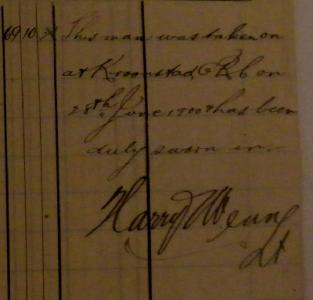 69 10 This man was taken on
at Kroonstad O R C on
28th June 1900 & has been
duly sworn in.
Harry
Lt